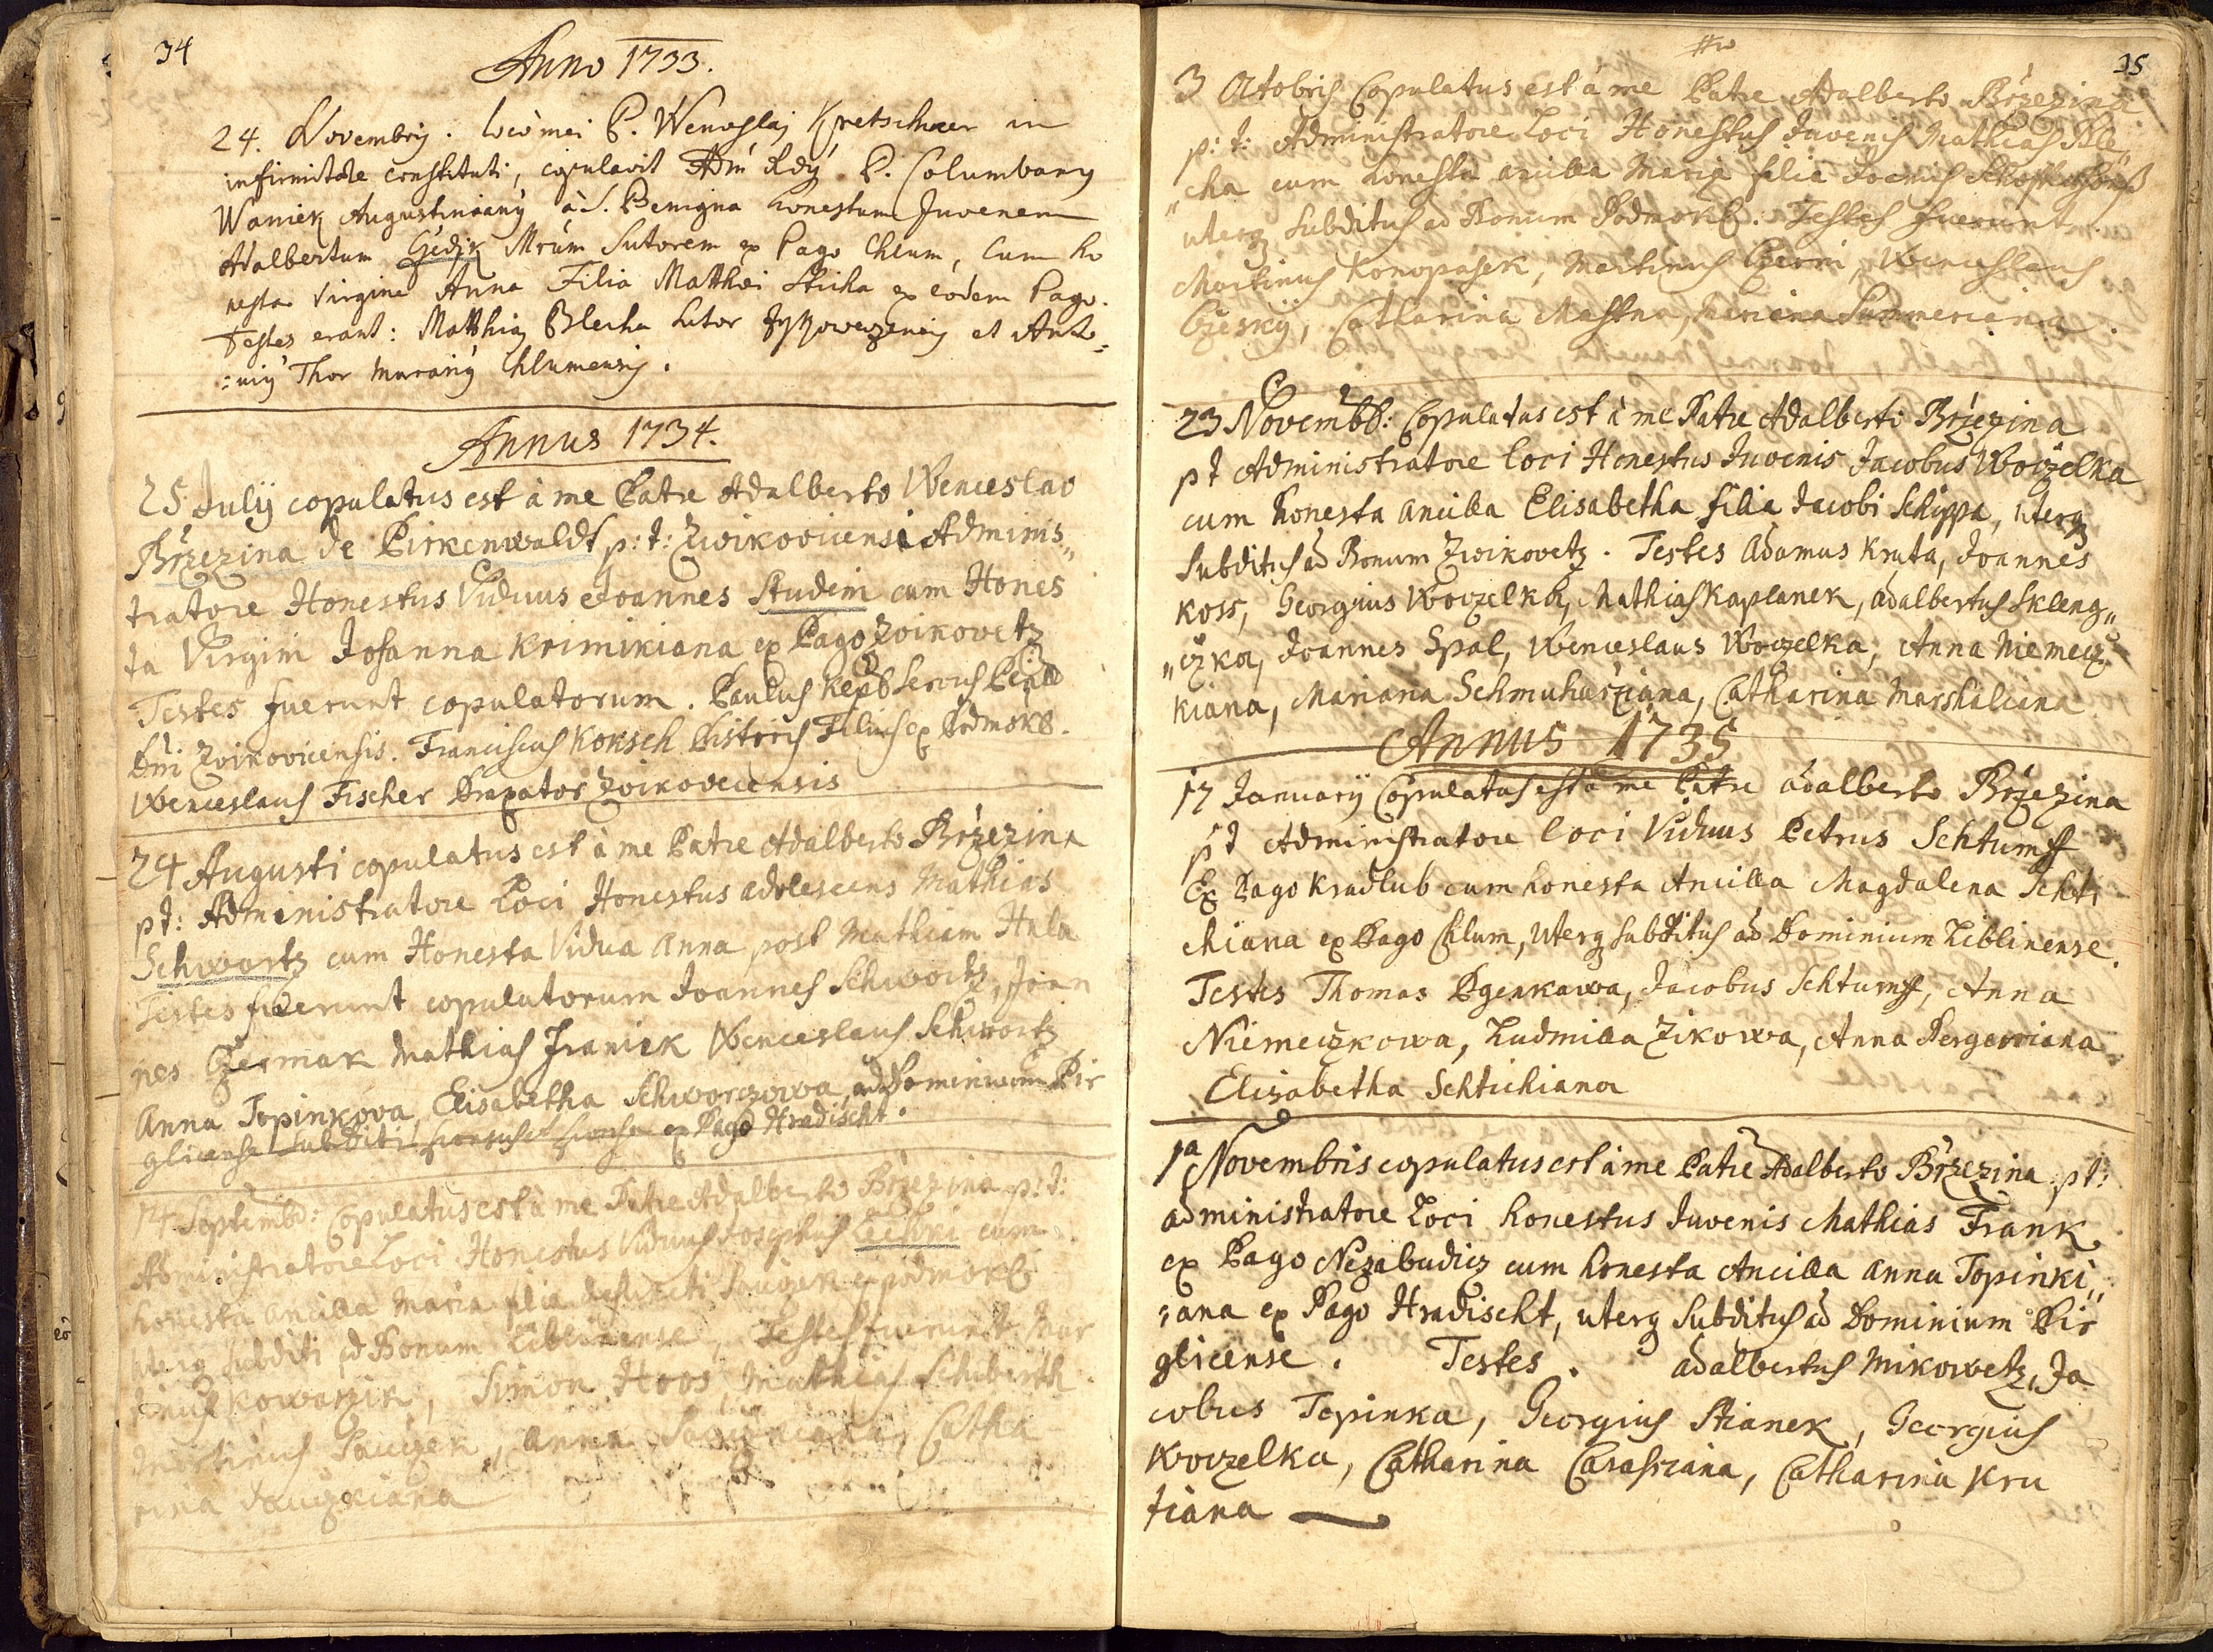 34
Anno 1733.
24. Novembris. loco mei P. Wenceslai Kretschmer in
infirmitate constituti, copulavit Adm Rdg P. Columbany
Waniek Augustiniany à S. Benigna honestum Juvenem
Adalbertum Gedjk Mrum Sutorem ex Pago Chlum, Cum ho
nesta Virgine Anna Filia Matthei Sticha ex eodem Pago.
Testes erant: Matthias Blecha Sutor et Anto=
:niy Thor murariy Chlumensis.
Annus 1734.
25 Julij copulatus est à me Patre Adalberto Wenceslao
Brzezina de Pirkenwaldt p: t: Zwikovicensi Adminis„
tratore Honestus Viduus Joannes Studeni cum Hones
ta Virgini Johanna Krimikiana ex Pago Zwikovetz
Testes fuerunt copulatorum. Paulus Servus
Dni Zwikovicensis. Franciscus Koksch Pistoris Filius ex Podmokl.
Wenceslaus Fischer Braxator Zwikovecensis
24 Augusti copulatus est à me Patre Adalberto Brzezina
pt: Administratore Loci Honestus adolescens Mathias
Schwortz cum Honesta Vidua Anna post Mathiam Hula
Testes fuerunt copulatorum Joannes Schwortz, Joan
nes Czermak Mathias Franiek Wenceslaus Schwortz
Anna Topinkova, Elisabetha Schworczowa, ad Dominium Pir
glicense Subditi ex Pago Hradischt.
14 Septembr: Copulatus est à me Patre Adalberto Brzezina p: t:
Administratore Loci Honestus Viduus Josephus cum
honesta ancilla Maria filia defuncti ex Podmokl
uterq subditi ad Bonum Liblinense, Testes fuerunt Mar
tinus Kowarzik, Simon Hoos, Mathias Schiberth
Martinus Anna Catha
rina
35
3 Octobris Copulatus est à me Patre Adalberto Brzezina
p: t: Administratore Loci Honestus Juvenis Mathias Ble„
„cha cum honesta ancilla Maria filia Joannis
uterq Subditus ad Bonum Podmokl: Testes fuerunt
Martinus Konopasek, Martinus Czerni, Wenceslaus
Czesky, Catharina Mastna,
23 Novembr: Copulatus est à me Patre Adalberto Brzezina
pt Administratore loci Honestus Juvenis Jacobus Woczelka
cum honesta ancilla Elisabetha filia Jacobi Schippa, uterq
Subditus ad Bonum Zwikovetz. Testes Adamus Kruta, Joannes
Koss, Georgius Woczelka, Mathias Kaplanek, Adalbertus Skleng„
„czka, Joannes Spal, Wenceslaus Woczelka, Anna Niemecz
kiana, Mariana Schmuharziana, Catharina Marshaliana
Annus 1735
17 Januarij Copulatus est a me Patre adalberto Brzezina
pt Administratore loci Viduus Petrus Schtumpf
Ex Pago Kradlub cum honesta Ancilla Magdalena Schti
chiana ex Pago Chlum, uterq subditus ad Dominium Liblinense.
Testes Thomas Jacobus Schtumpf, Anna
Niemeczkowa, Ludmilla Zikowa, Anna
Elisabetha Schtichiana
1a Novembris copulatus est à me Patre Adalberto Brzezina pt:
administratore Loci honestus Juvenis Mathias Frank
ex Pago Nezabudicz cum honesta Ancilla Anna Topinki„
:ana ex Pago Hradischt, uterq Subditus ad Dominium Pir
glicense. Testes. adalbertus Mikowetz, Ja
cobus Topinka, Georgius Stianek, Georgius
Woczelka, Catharina Catharina Kru
tiana